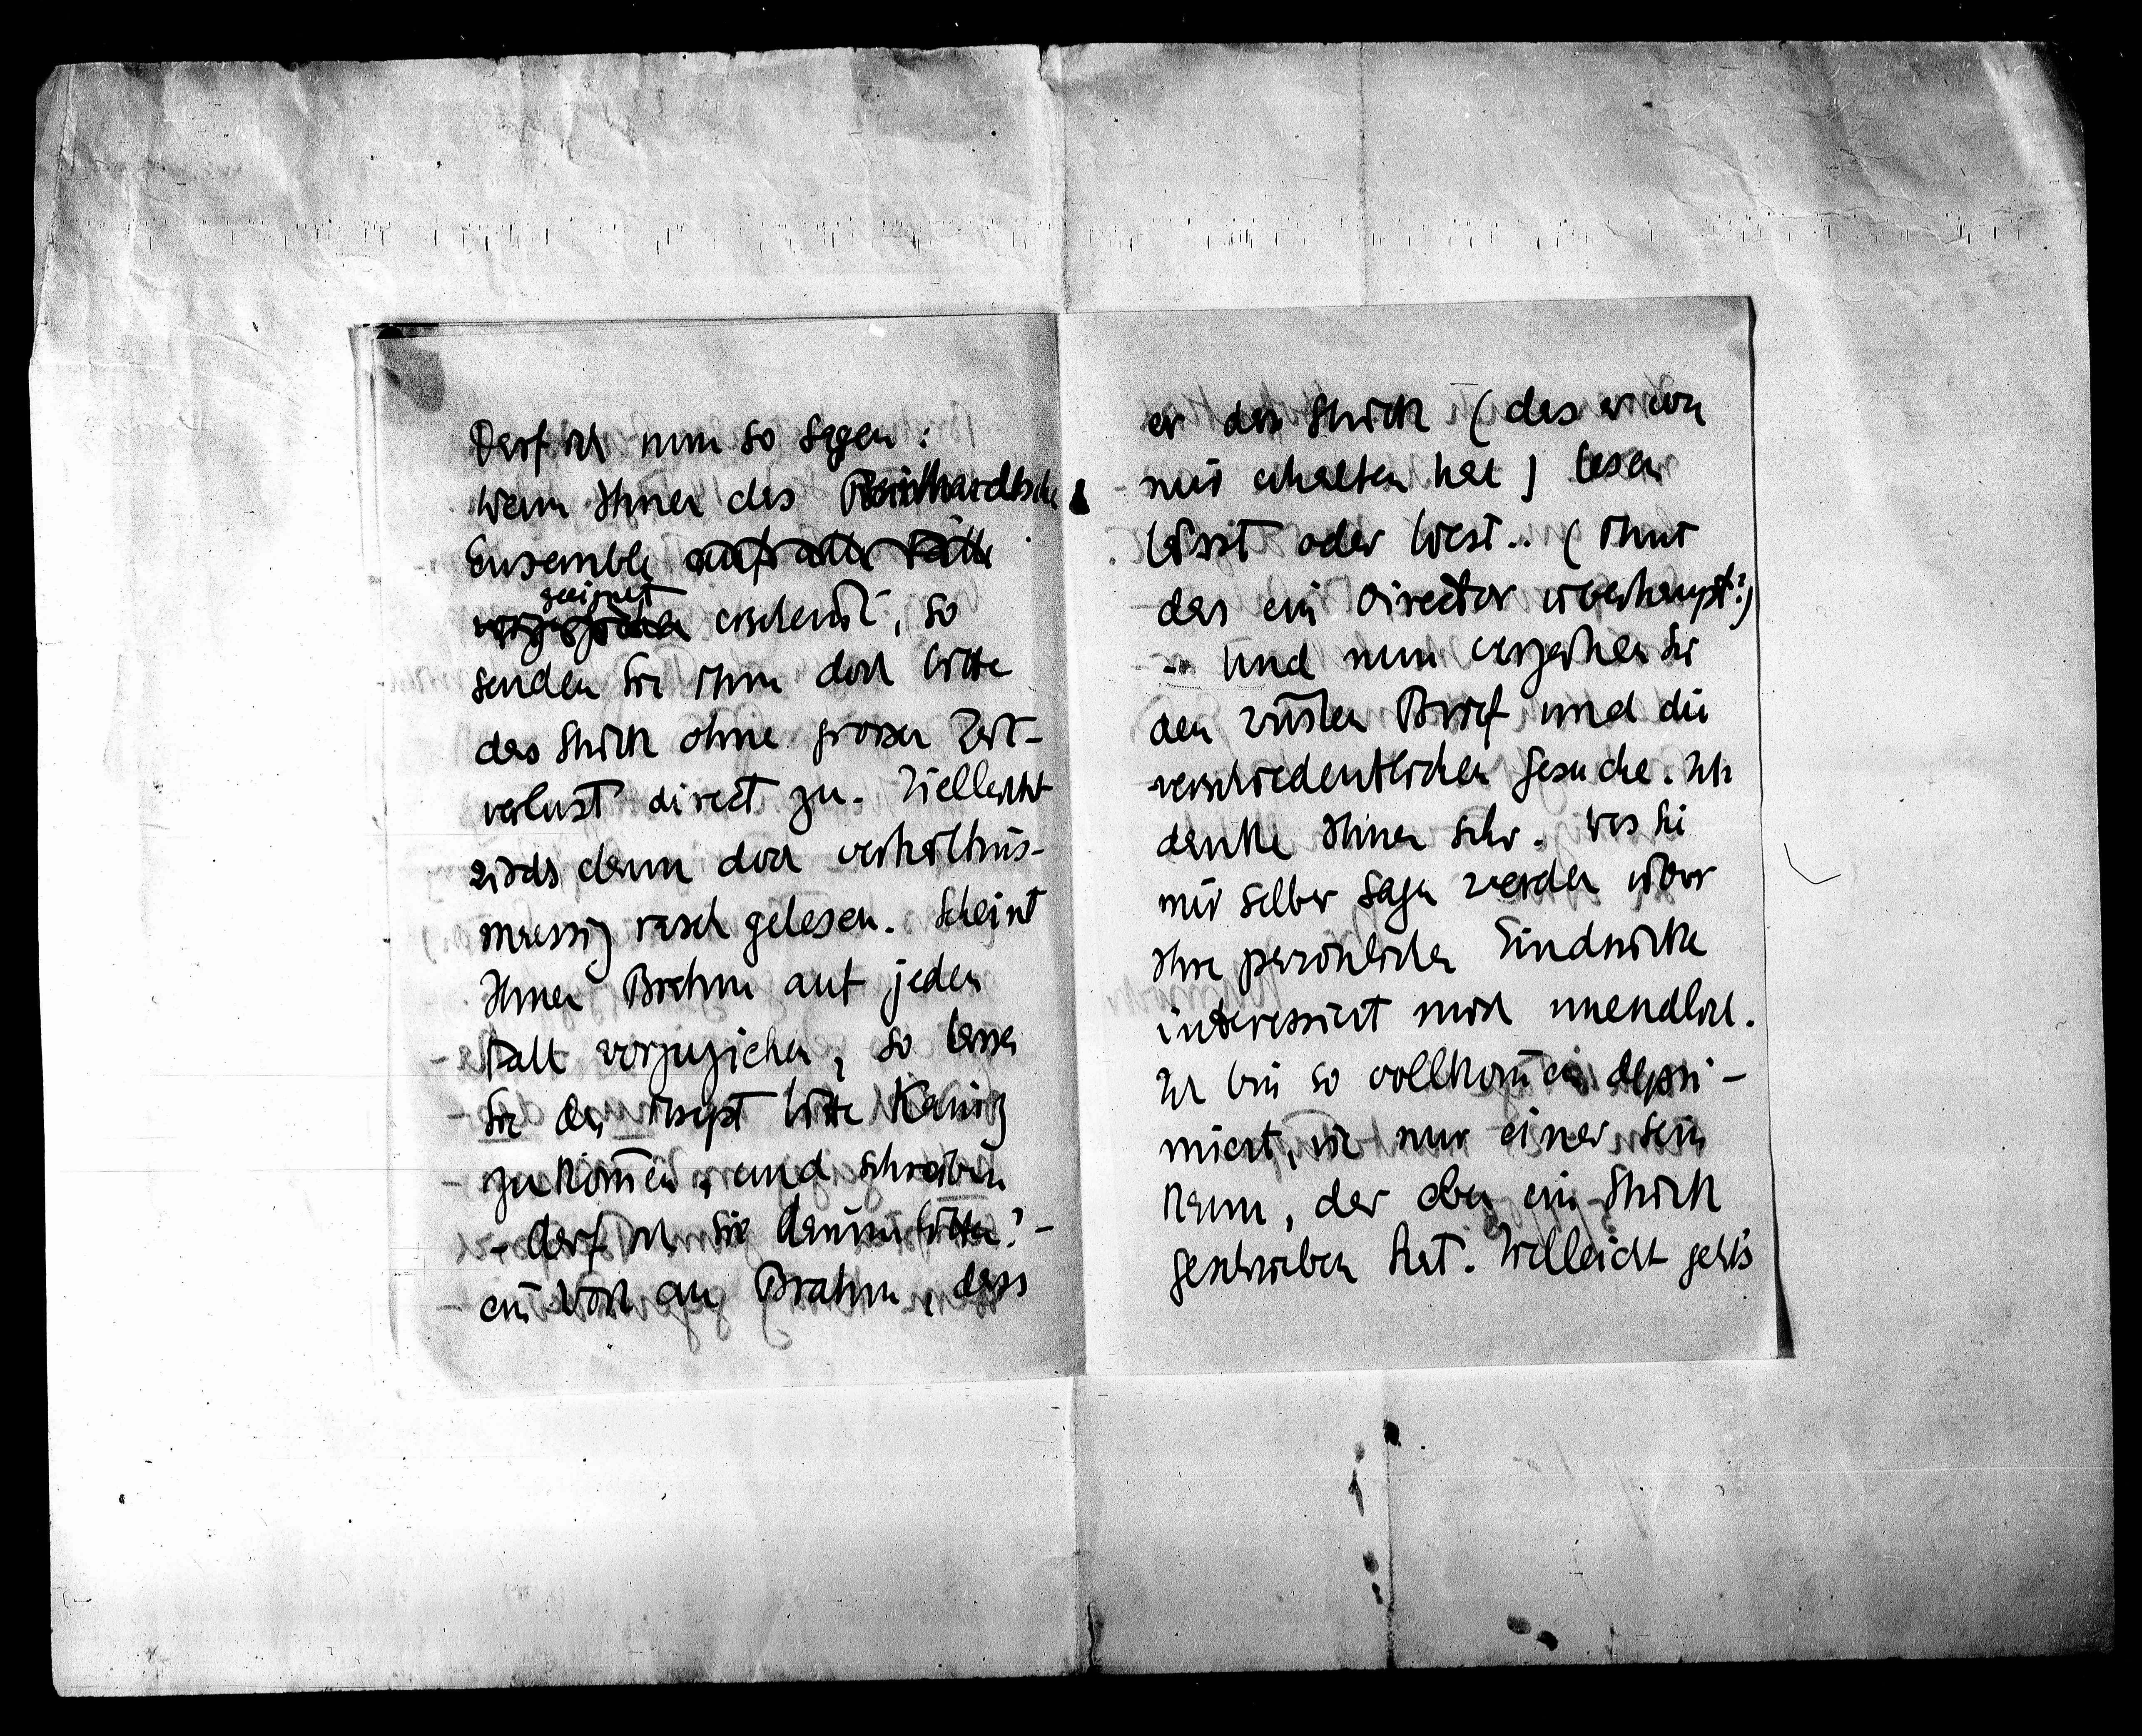 Darf ich nun so sagen:
Wenn Ihnen das Reinhardtsche
Ensemble auf alle Fälle
geeignet
erscheint, so
senden Sie ihm doch bitte
das Stück ohne grossen Zeit-
verlust direct zu. Vielleicht
wirds dann doch verhältnis-
mässig rasch gelesen. Scheint
Ihnen Brahm auf jeden
Fall vorzuziehen, so lassen
Sie das bitte Kainz
zukom̅en, und schreiben
– darf ich Sie darum bitten? –
ein Wort an Brahm, dass
er das Stück (das er von
mir erhalten hat) lesen
lässt oder liest.. (Thut
das ein Director überhaupt?)
– Und nun verzeihen Sie
den wüsten Brief und die
verschiedentlichen Gesuche. Ich
danke Ihnen sehr. Was Sie
mir selber sagen werden über
Ihre persönlichen Eindrücke
interessiert mich unendlich.
Ich bin so vollkom̅en depri-
miert, wie nur einer sein
kann, der eben ein Stück
geschrieben hat. Vielleicht geht's